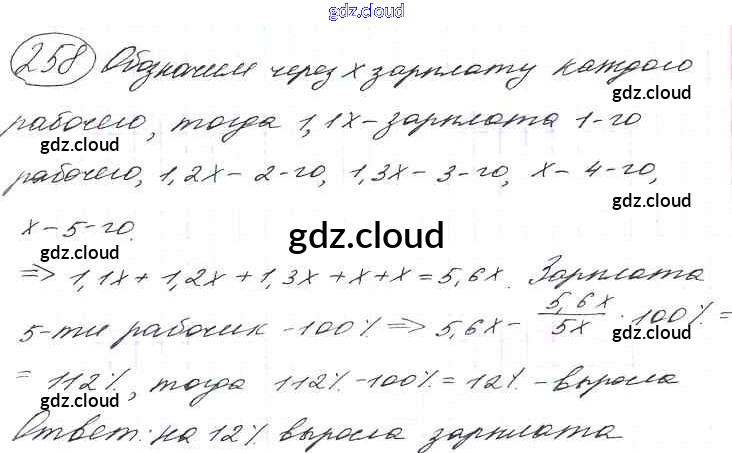 gdz.cloud
258 Обозначим через x зарплату каждого
gdz.cloud
рабочего, тогда 1,1x - зарплата 1-го
gdz.cloud
gdz.cloud
рабочего, 1,2x - 2-го, 1,3x - 3-го, x - 4-го,
gdz.cloud
x - 5-го.
gdz.cloud
gdz.cloud
=> 1,1x + 1,2x + 1,3x + x + x = 5,6x. Зарплата
5-ти рабочих - 100% => 5,6x - 5,6x/5x · 100% =
gdz.cloud
gdz.cloud
= 112%, тогда 112% - 100% = 12% - выросла
gdz.cloud
gdz.cloud
Ответ: на 12% выросла зарплата